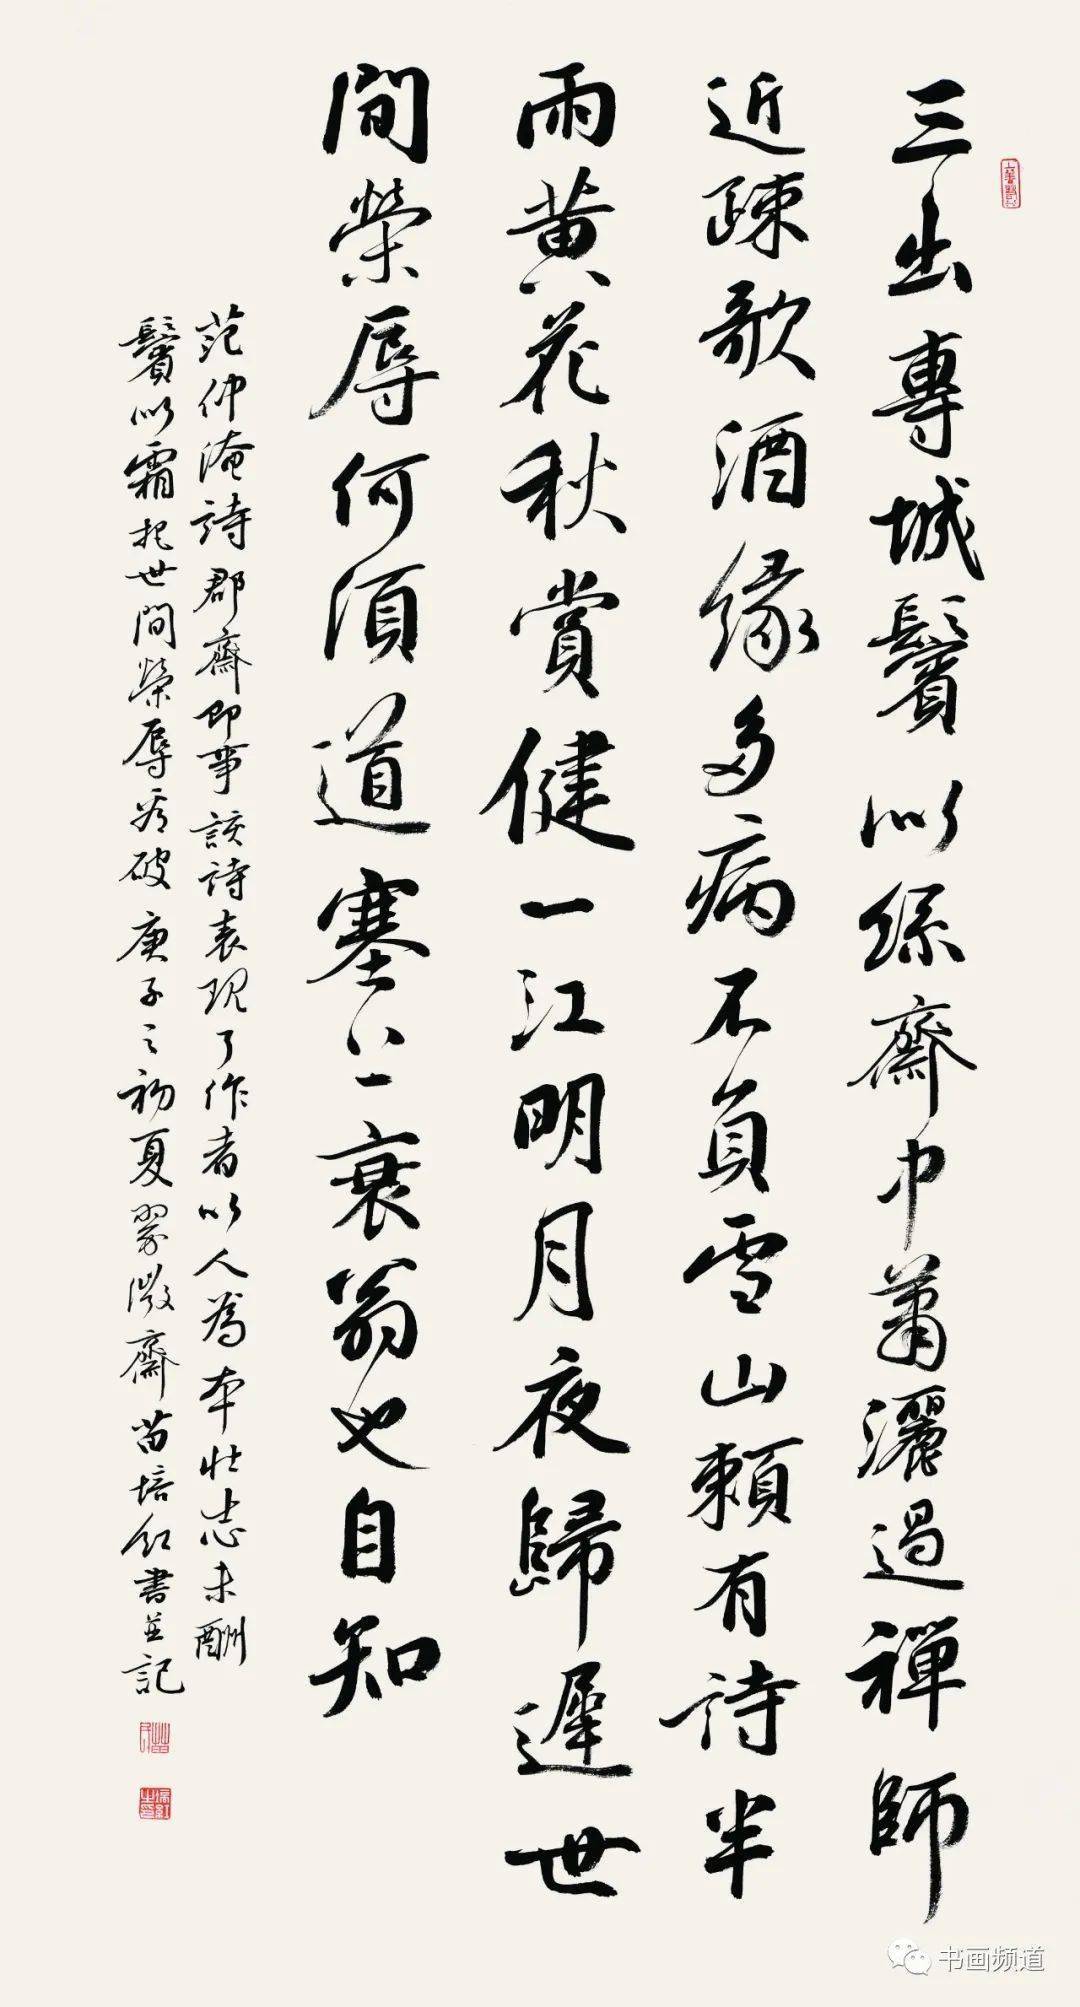 三出專城鬢似絲齋中蕭灑過禪師
近疎歌酒緣多病不負雲山賴有詩半
雨黃花秋賞健一江明月夜歸遲世
間榮辱何須道塞上衰翁也自知
范仲淹詩郡齋即事該詩表現了作者以人為本壯志未酬
鬢似霜把世間榮辱看破庚子之初夏翠微齋苗培紅書並記
书画频道